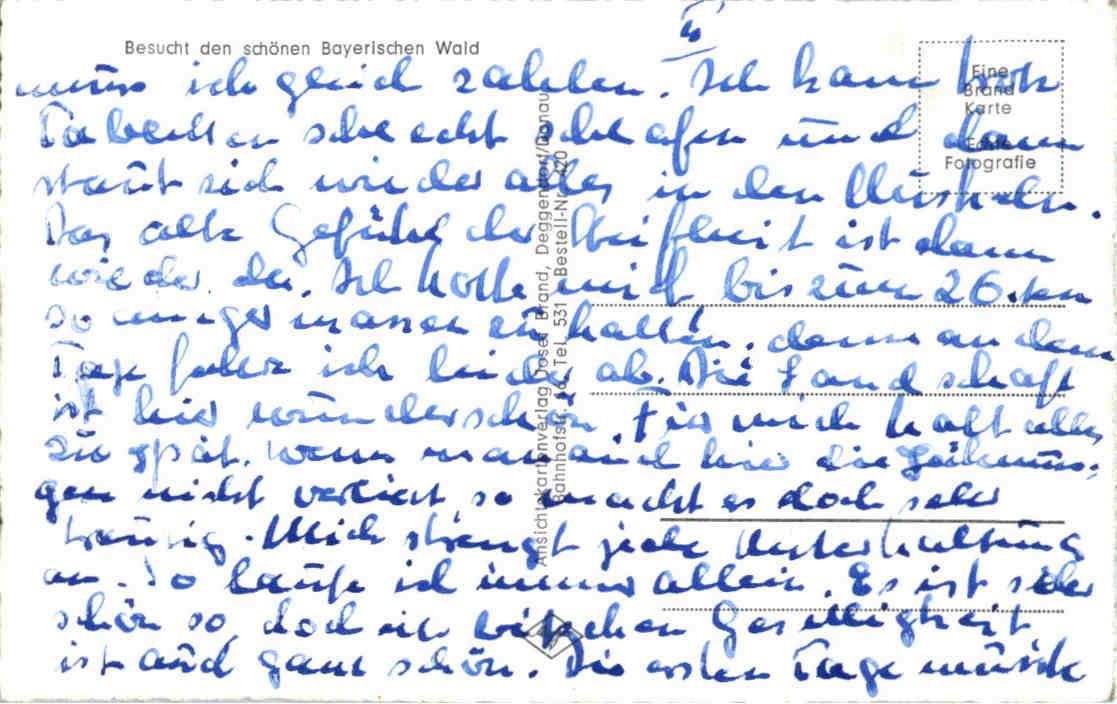 II
Besucht den schönen Bayerischen Wald
Eine
Brand
Karte
Echte
Fotografie
muss ich gleich zahlen. Ich kann trotz
Tabletten schlecht schlafen und dann
staut sich wieder alles in den Muskeln.
Das alte Gefühl der Steifheit ist dann
wieder da. Ich hoffe mich bis zum 26. ten
so einigermassen zu halten, denn an dem
Tage fahre ich leider ab. Die Landschaft
ist hier wunderschön. Für mich halt alles
zu spät. Wenn man auch hier die Hemmun-
gen nicht verliert so macht es doch sehr
traurig. Mich strengt jede Unterhaltung
an. So laufe ich immer allein. Es ist sehr
schön so, doch ein bißchen Geselligkeit
ist auch ganz schön. Die ersten Tage musste
Ansichtskartenverlag Josef Brand, Deggendorf/Donau
Bahnhofstr. Tel. 531 Bestell-Nr.